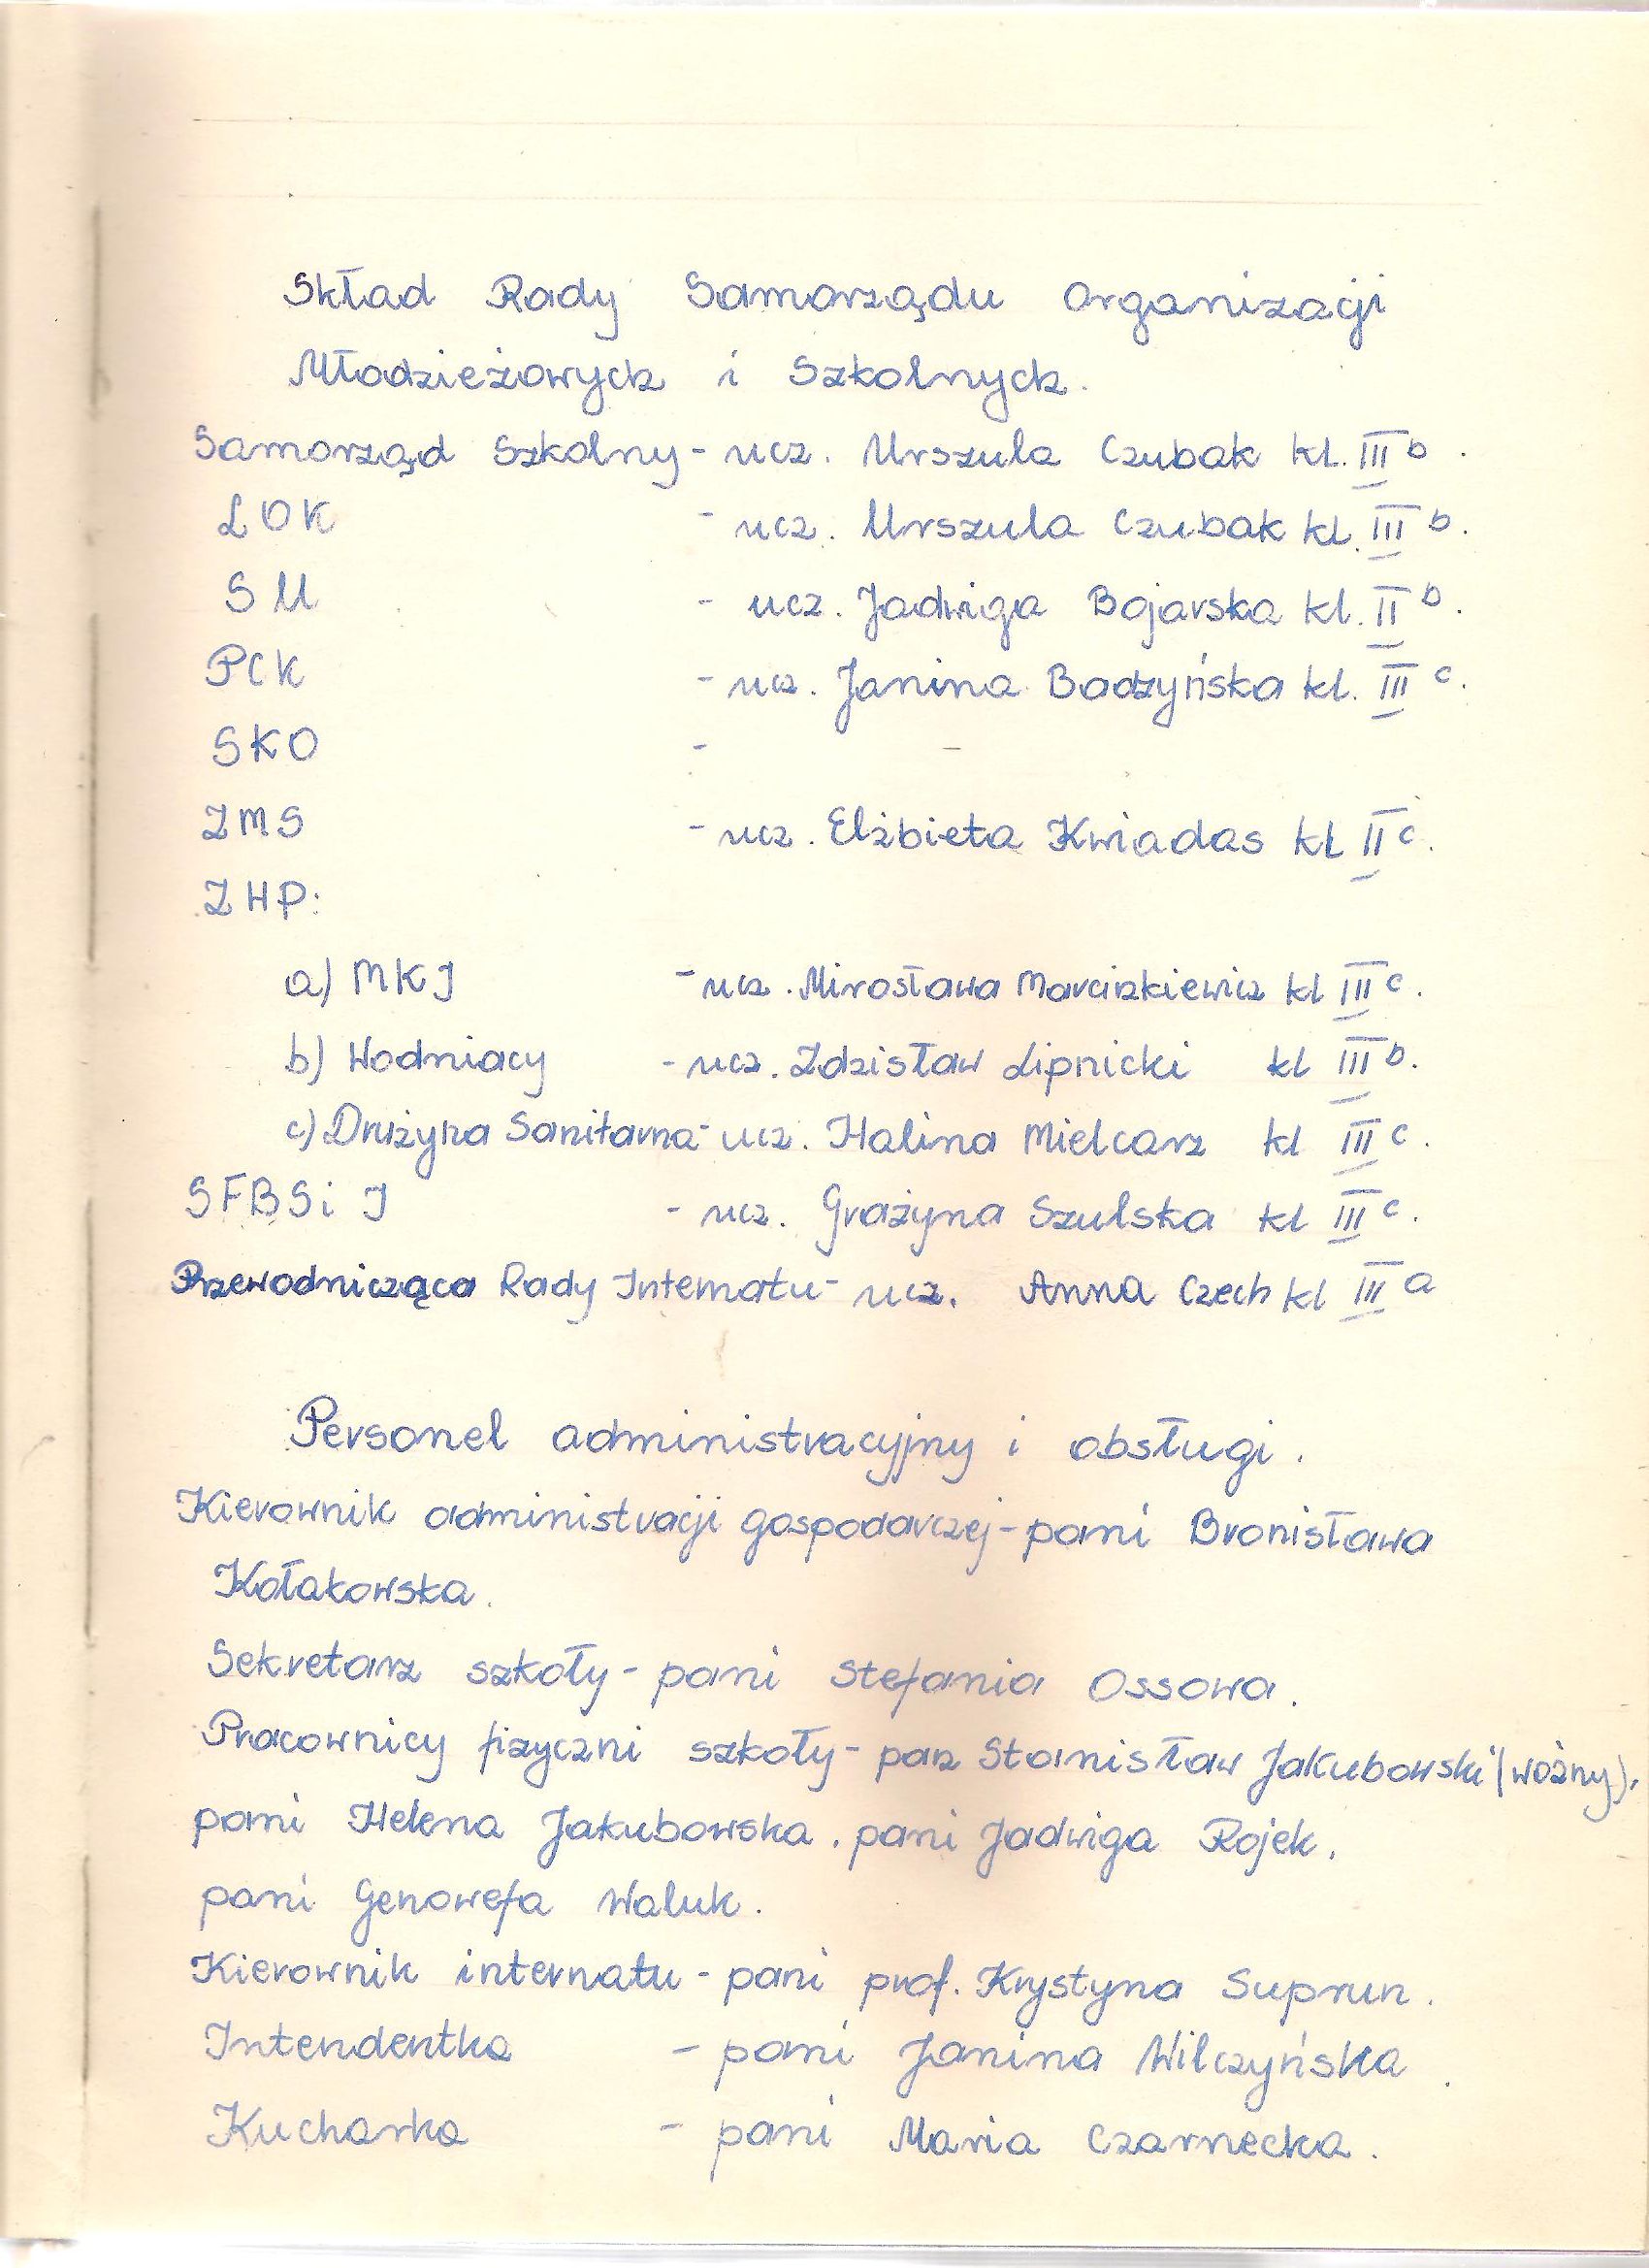 Skład Rady Samorządu Organizacji
Młodzieżowych i Szkolnych.
Samorząd Szkolny - ucz. Urszula Czubak kl. III b.
LOK - ucz. Urszula Czubak kl. III b.
SU - ucz. Jadwiga Bojarska kl. II b.
PCK - ucz. Janina Badzyńska kl. III c.
SKO - –
ZMS - ucz. Elżbieta Kwiadas kl II c.
ZHP:
a) MKJ - ucz. Mirosława Marciszkiewicz kl III c.
b) Wodniacy - ucz. Zdzisław Lipnicki kl III b.
c) Drużyna Sanitarna - ucz. Halina Mielcarz kl III c.
SFBS i J - ucz. Grażyna Szulska kl III c.
Przewodnicząca Rady Internatu - ucz. Anna Czech kl III a
Personel administracyjny i obsługi.
Kierownik administracji gospodarczej - pani Bronisława
Kołakowska.
Sekretarz szkoły - pani Stefania Ossowa.
Pracownicy fizyczni szkoły - pan Stanisław Jakubowski (woźny),
pani Helena Jakubowska, pani Jadwiga Rojek,
pani Genowefa Waluk.
Kierownik internatu - pani prof. Krystyna Suprun.
Intendentka - pani Janina Wilczyńska.
Kucharka - pani Maria Czarnecka.